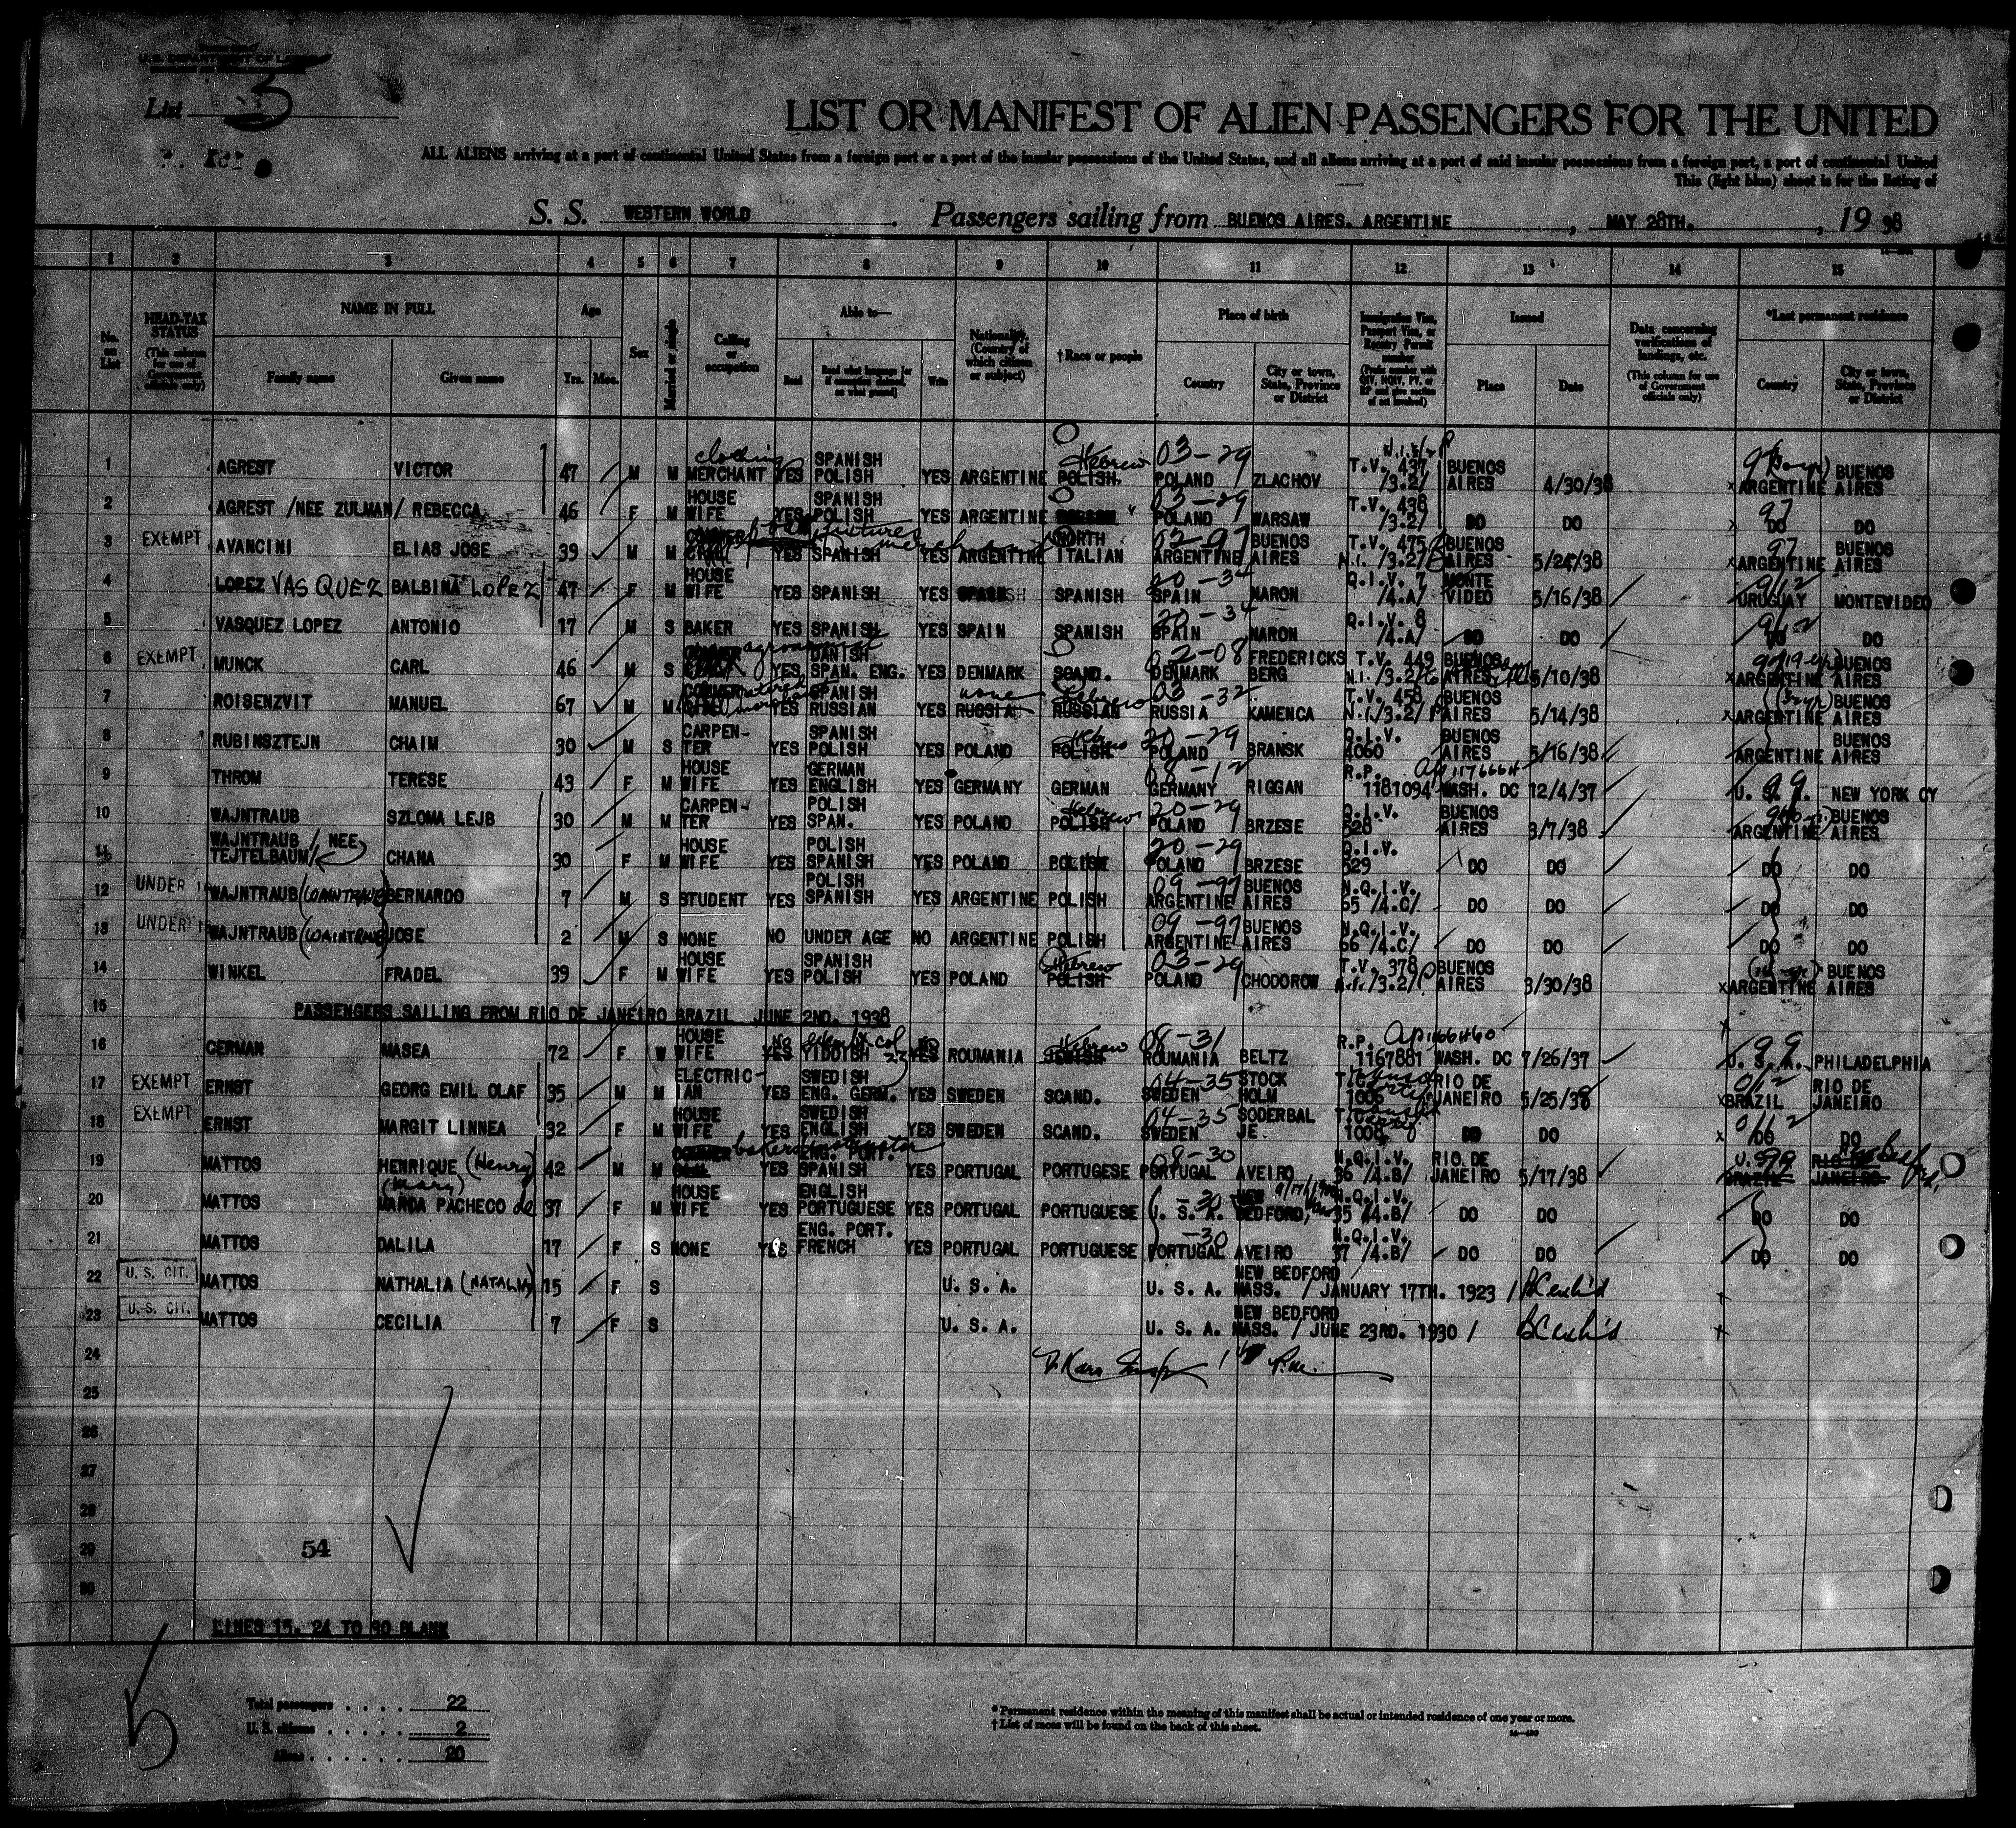 U.S. DEPARTMENT OF
List 3
LIST OR MANIFEST OF ALIEN PASSENGERS FOR THE UNITED
ALL ALIENS arriving at a port of continental United States from a foreign port or a port of the insular possessions of the United States, and all aliens arriving at a port of said insular possessions from a foreign port, a port of continental United
This (light blue) sheet is for the listing of
S. S. WESTERN WORLD Passengers sailing from BUENOS AIRES, ARGENTINE, MAY 28TH, 1938
1 2 3 4 5 6 7 8 9 10 11 12 13 14 15
No. on List
HEAD-TAX STATUS (This column for use of Government officials only)
NAME IN FULL
Family name Given name
Age
Yrs. Mos.
Sex
Married or single
Calling or occupation
Able to—
Read Read what language [or if exemption claimed, on what ground] Write
Nationality. (Country of which citizen or subject)
†Race or people
Place of birth
Country City or town, State, Province or District
Immigration Visa, Passport Visa, or Reentry Permit number (Prefix number with QIV, NQIV, PV, or RP and give section of act involved)
Issued
Place Date
Data concerning verifications of landings, etc. (This column for use of Government officials only)
*Last permanent residence
Country City or town, State, Province or District
1 AGREST VICTOR 47 M M clothing MERCHANT YES SPANISH POLISH YES ARGENTINE Hebrew POLISH 03-29 POLAND ZLACHOV T.V. 437 /3.2/ BUENOS AIRES 4/30/38 ARGENTINE BUENOS AIRES
2 AGREST /NEE ZULMAN/ REBECCA 46 F M HOUSE WIFE YES SPANISH POLISH YES ARGENTINE " 03-29 POLAND WARSAW T.V. 438 /3.2/ DO DO 97 DO DO
3 EXEMPT AVANCINI ELIAS JOSE 39 M M YES SPANISH YES ARGENTINE NORTH ITALIAN 02-97 ARGENTINE BUENOS AIRES T.V. 475 N.I. /3.2/ BUENOS AIRES 5/24/38 97 ARGENTINE BUENOS AIRES
4 LOPEZ VASQUEZ BALBINA LOPEZ 47 F M HOUSE WIFE YES SPANISH YES SPANISH SPANISH 20-34 SPAIN NARON Q.I.V. 7 /4.A/ MONTE VIDEO 5/16/38 9/12 URUGUAY MONTEVIDEO
5 VASQUEZ LOPEZ ANTONIO 17 M S BAKER YES SPANISH YES SPAIN SPANISH 20-34 SPAIN NARON Q.I.V. 8 /4.A/ DO DO 9/12 DO DO
6 EXEMPT MUNCK CARL 46 M S YES DANISH SPAN. ENG. YES DENMARK SCAND. 02-08 DENMARK FREDERICKS BERG T.V. 449 N.I. /3.2/ BUENOS AIRES 5/10/38 ARGENTINE BUENOS AIRES
7 ROISENZVIT MANUEL 67 M M YES SPANISH RUSSIAN YES none RUSSIA Hebrew RUSSIAN 03-32 RUSSIA KAMENCA T.V. 458 N.I. /3.2/ BUENOS AIRES 5/14/38 ARGENTINE BUENOS AIRES
8 RUBINSZTEJN CHAIM 30 M S CARPENTER YES SPANISH POLISH YES POLAND POLISH 20-29 POLAND BRANSK Q.I.V. 4060 BUENOS AIRES 5/16/38 ARGENTINE BUENOS AIRES
9 THROM TERESE 43 F M HOUSE WIFE YES GERMAN ENGLISH YES GERMANY GERMAN 08-12 GERMANY RIGGAN R.P. 1181094 WASH. DC 12/4/37 U. S. A. NEW YORK CY
10 WAJNTRAUB SZLOMA LEJB 30 M M CARPEN-TER YES POLISH SPAN. YES POLAND Hebrew POLISH 20-29 POLAND BRZESE Q.I.V. 528 BUENOS AIRES 3/7/38 ARGENTINE BUENOS AIRES
11 WAJNTRAUB / NEE TEJTELBAUM/ CHANA 30 F M HOUSE WIFE YES POLISH SPANISH YES POLAND POLISH 20-29 POLAND BRZESE Q.I.V. 529 DO DO DO DO
12 UNDER WAJNTRAUB (WAINTRAUB) BERNARDO 7 M S STUDENT YES POLISH SPANISH YES ARGENTINE POLISH 09-97 ARGENTINE BUENOS AIRES N.Q.I.V. 65 /4.C/ DO DO DO DO
13 UNDER WAJNTRAUB (WAINTRAUB) JOSE 2 M S NONE NO UNDER AGE NO ARGENTINE POLISH 09-97 ARGENTINE BUENOS AIRES N.Q.I.V. 66 /4.C/ DO DO DO DO
14 WINKEL FRADEL 39 F M HOUSE WIFE YES SPANISH POLISH YES POLAND Hebrew POLISH 03-29 POLAND CHODOROW T.V. 378 N.I. /3.2/ BUENOS AIRES 3/30/38 ARGENTINE BUENOS AIRES
15 PASSENGERS SAILING FROM RIO DE JANEIRO BRAZIL JUNE 2ND. 1938
16 CERMAN MASEA 72 F W HOUSE WIFE NO YES YIDDISH NO YES ROUMANIA Hebrew JEWISH 08-31 ROUMANIA BELTZ R.P. 1167881 WASH. DC 7/26/37 99 U. S. A. PHILADELPHIA
17 EXEMPT ERNST GEORG EMIL OLAF 35 M M ELECTRIC-IAN YES SWEDISH ENG. GERM. YES SWEDEN SCAND. 04-35 SWEDEN STOCK HOLM 1006 RIO DE JANEIRO 5/25/38 0/12 BRAZIL RIO DE JANEIRO
18 EXEMPT ERNST MARGIT LINNEA 32 F M HOUSE WIFE YES SWEDISH ENGLISH YES SWEDEN SCAND. 04-35 SWEDEN SODERBAL JE 1008 DO DO 0/12 DO DO
19 MATTOS HENRIQUE (Henry) 42 M M YES ENG. PORT. SPANISH YES PORTUGAL PORTUGESE 08-30 PORTUGAL AVEIRO N.Q.I.V. 36 /4.B/ RIO DE JANEIRO 5/17/38 U.S. 99 BRAZIL RIO DE JANEIRO
20 MATTOS (Mary) MARIA PACHECO de 37 F M HOUSE WIFE YES ENGLISH PORTUGUESE YES PORTUGAL PORTUGUESE -30 U. S. A. NEW BEDFORD, N.Q.I.V. 35 /4.B/ DO DO DO DO
21 MATTOS DALILA 17 F S NONE YES ENG. PORT. FRENCH YES PORTUGAL PORTUGUESE -30 PORTUGAL AVEIRO N.Q.I.V. 37 /4.B/ DO DO DO DO
22 U. S. CIT. MATTOS NATHALIA (NATALIA) 15 F S U. S. A. U. S. A. NEW BEDFORD MASS. / JANUARY 17TH. 1923 /
23 U. S. CIT. MATTOS CECILIA 7 F S U. S. A. U. S. A. NEW BEDFORD MASS. / JUNE 23RD. 1930 /
24
25
26
27
28
29
30
54
LINES 15, 24 TO 30 BLANK
Total passengers . . . . 22
U. S. citizens . . . . . 2
Aliens . . . . . . 20
* Permanent residence within the meaning of this manifest shall be actual or intended residence of one year or more.
† List of races will be found on the back of this sheet.